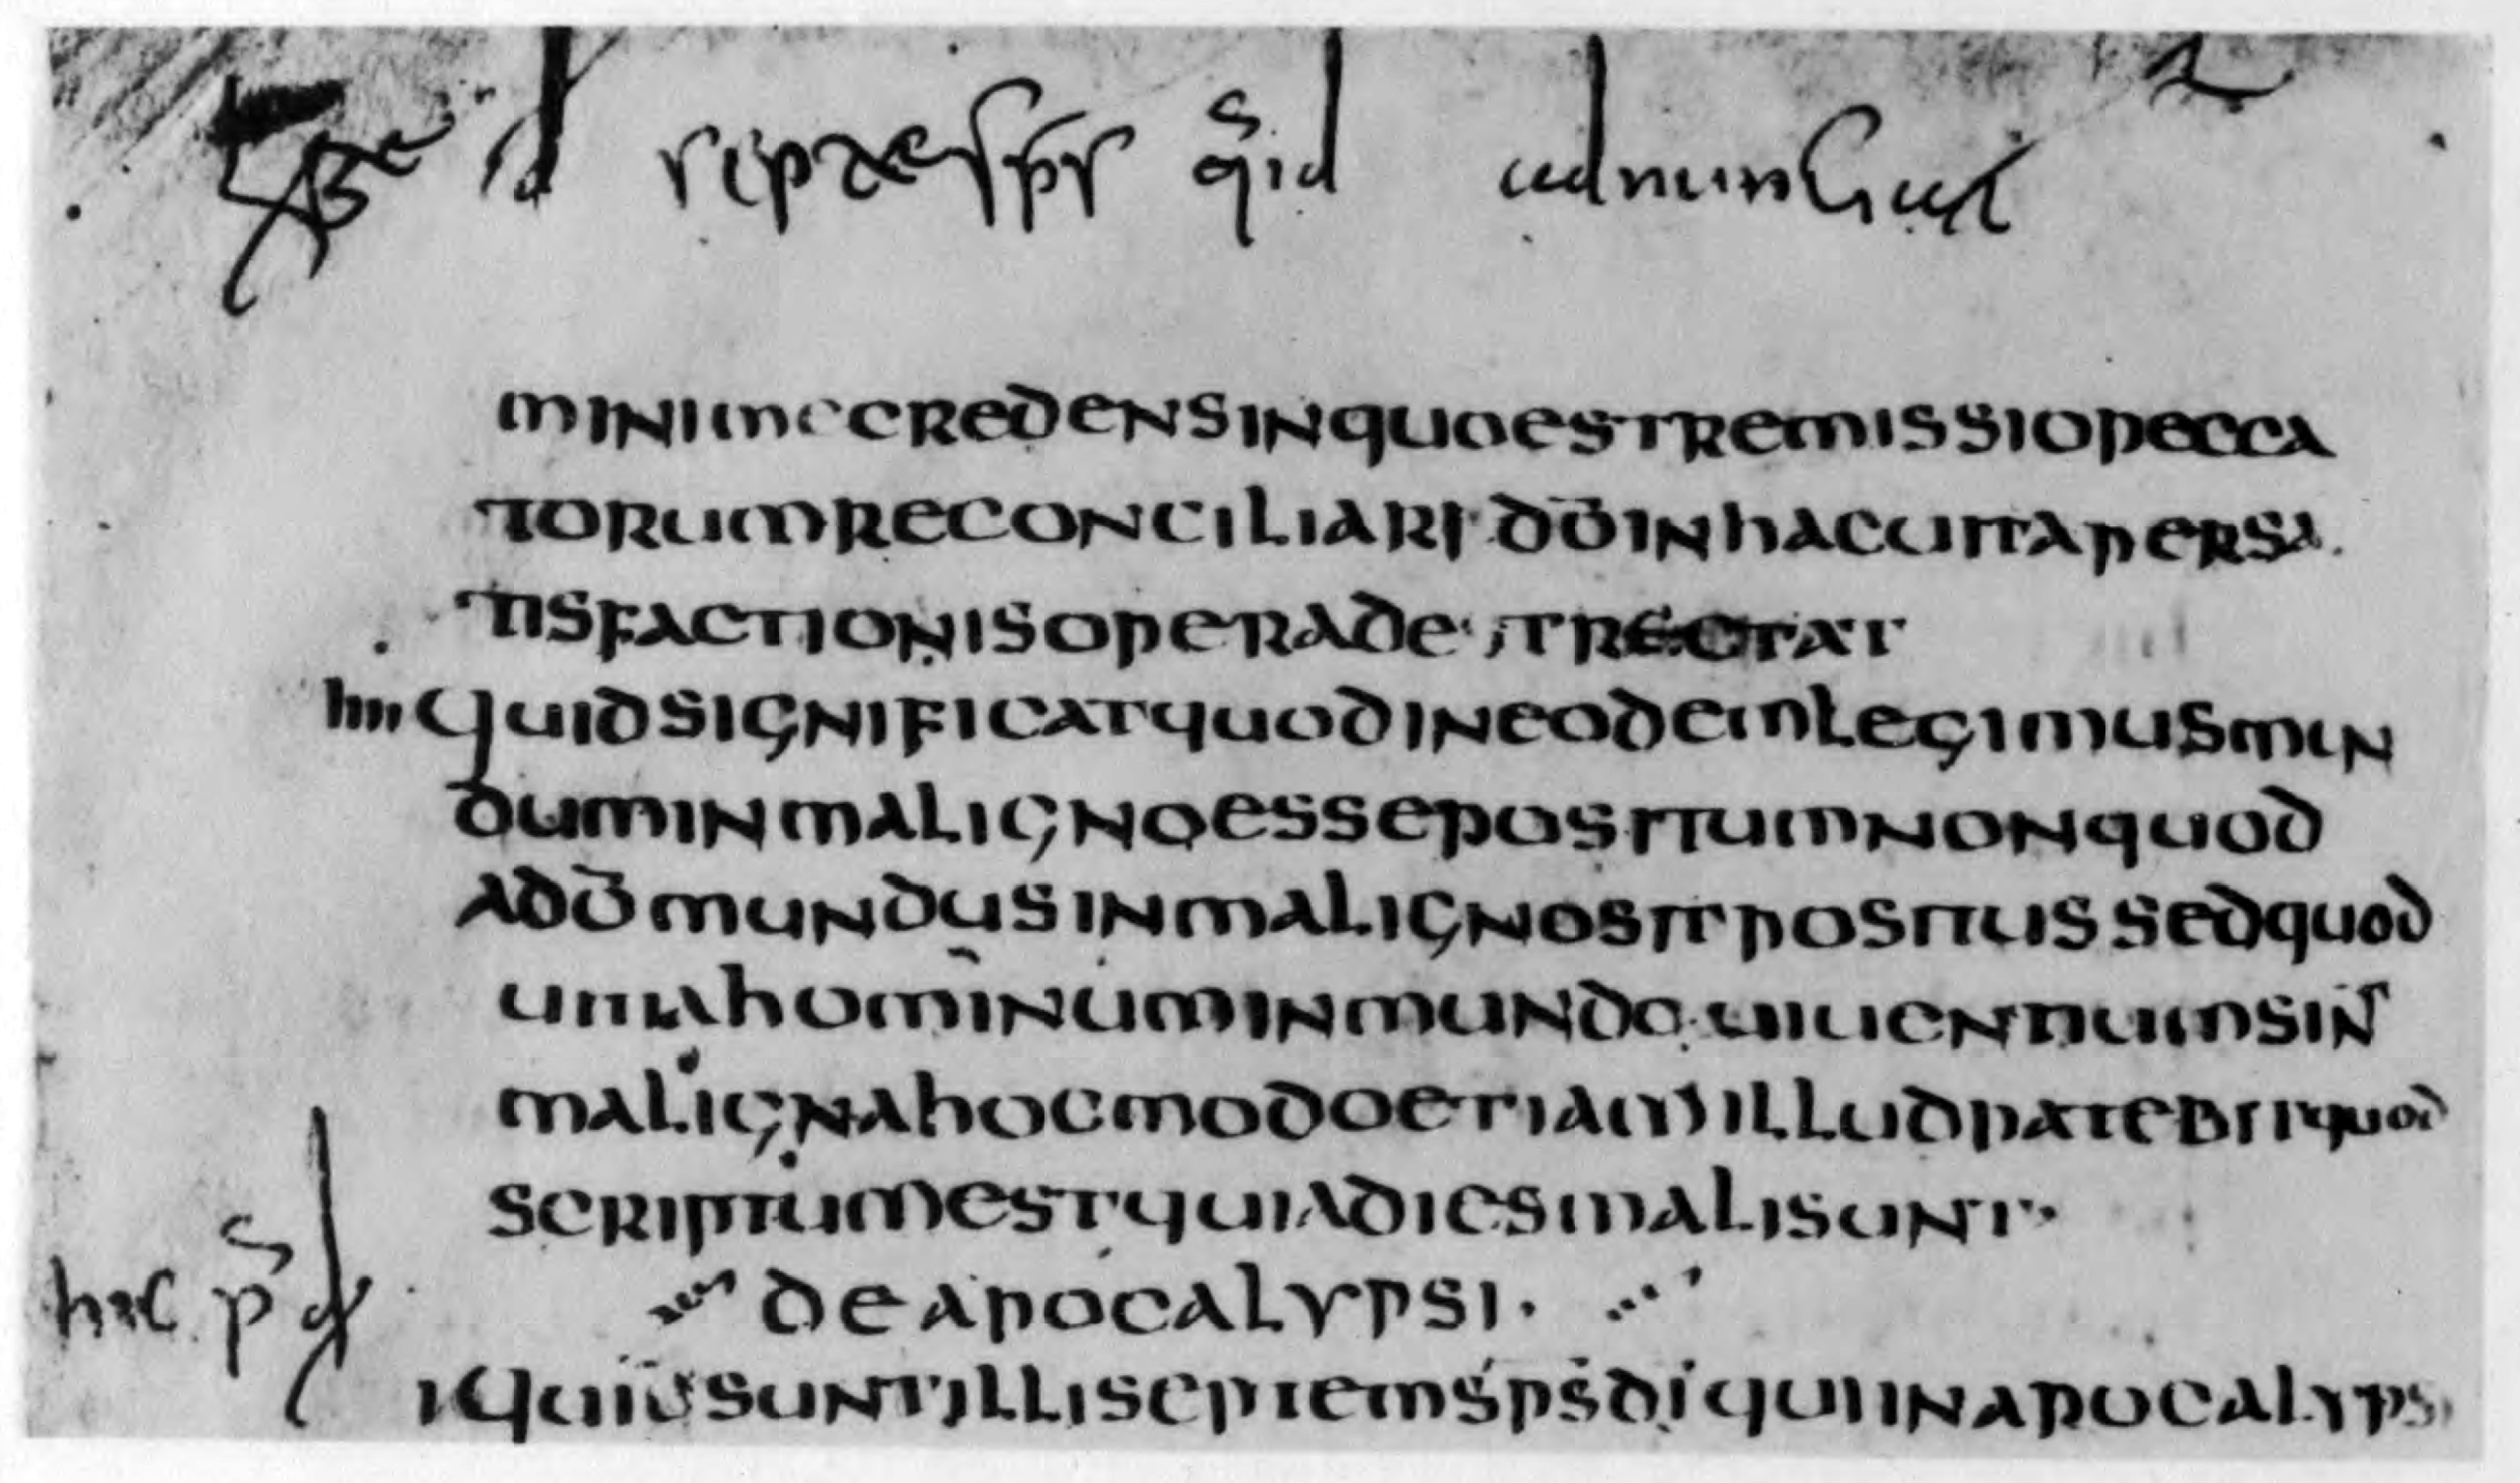 MINIMECREDENSINQUOESTREMISSIOPECCA
TORUMRECONCILIARIDŌINHACUITAPERSA
TISFACTIONISOPERADETRECTAT
IIII QUIDSIGNIFICATQUODINEODEMLEGIMUSMUN
DUMINMALIGNOESSEPOSITUMNONQUOD
ADŌMUNDUSINMALIGNOSITPOSITUSSEDQUOD
UITAHOMINUMINMUNDOUIUENTIUMSINT
MALIGNAHOCMODOETIAMILLUDPATEBITQUOD
SCRIPTUMESTQUIADIESMALISUNT
hic
DEAPOCALYPSI.
I QUIŪSUNTILLISEPTEMSPSDIQUIINAPOCALYPSI